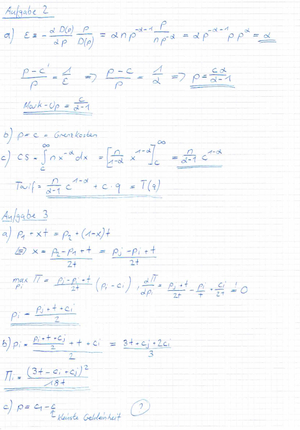 Aufgabe 2
a) ε = - ∂D(p)/∂p · p/D(p) = α n p^(-α-1) p/(n p^-α) = α p^(-α-1) p p^α = α
(p - c')/p = 1/ε => (p - c)/p = 1/α => p = cα/(α-1)
Mark-Up = c/(α-1)
b) p = c = Grenzkosten
c) CS = ∫_c^∞ n x^-α dx = [n/(1-α) x^(1-α)]_c^∞ = n/(α-1) c^(1-α)
Tarif = n/(α-1) c^(1-α) + c · q = T(q)
Aufgabe 3
a) p₁ + xt = p₂ + (1-x)t
<=> x = (p₂ - p₁ + t)/2t = (pⱼ - pᵢ + t)/2t
max_pᵢ Π = (pⱼ - pᵢ + t)/2t (pᵢ - cᵢ) , ∂Π/∂pᵢ = (pⱼ + t)/2t - pᵢ/t + cᵢ/2t != 0
pᵢ = (pⱼ + t + cᵢ)/2
b) pᵢ = ((pᵢ + t + cⱼ)/2 + t + cᵢ)/2 = (3t + cⱼ + 2cᵢ)/3
Πᵢ = (3t - cᵢ + cⱼ)²/18t
c) p = c₁ - ε
kleinste Geldeinheit
?